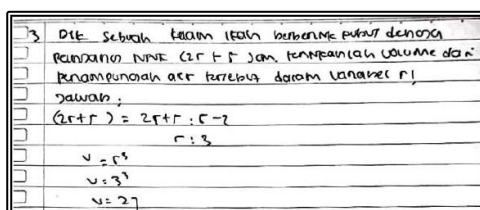 3 Dik sebuah kolam ikan berbentuk kubus dengan
panjang rusuk (2r + 5) cm. tentukanlah volume dari
penampungan air tersebut dalam variabel r!
Jawab:
(2r+r) = 2r+r : 5-2
r : 3
v = r³
v : 3³
v = 27